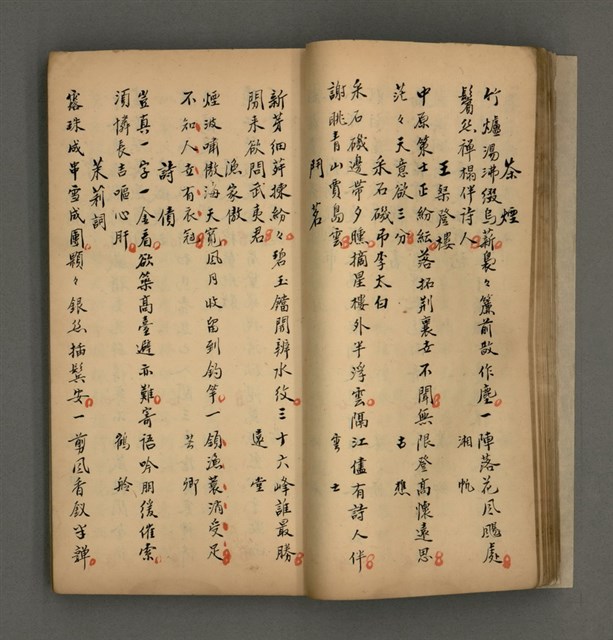 茶煙
竹爐湯沸綴烏薪裊々簾前散作塵一陣落花風颺處
鬢絲禪榻伴詩人 湘帆
王粲登樓
中原策士正紛紜落拓荊襄世不聞無限登高懷遠思
茫々天意欲三分 古樵
采石磯弔李太白
采石磯邊帶夕曛摘星樓外半浮雲隔江儘有詩人伴
謝眺青山賈島雲 雲士
鬥茗
新芽細蒜揀紛々碧玉鐺間辨水紋三十六峰誰最勝
閒來欲問武夷君 遠堂
漁家傲
煙波嘯傲海天寬風月收留到釣竿一領漁蓑消受足
不知人世有衣冠 芸卿
詩債
豈真一字一金看欲築高臺避亦難寄語吟朋緩催索
須憐長吉嘔心肝 鶴舲
茉莉詞
露珠成串雪成團顆々銀絲插鬢安一剪風香釵半嚲